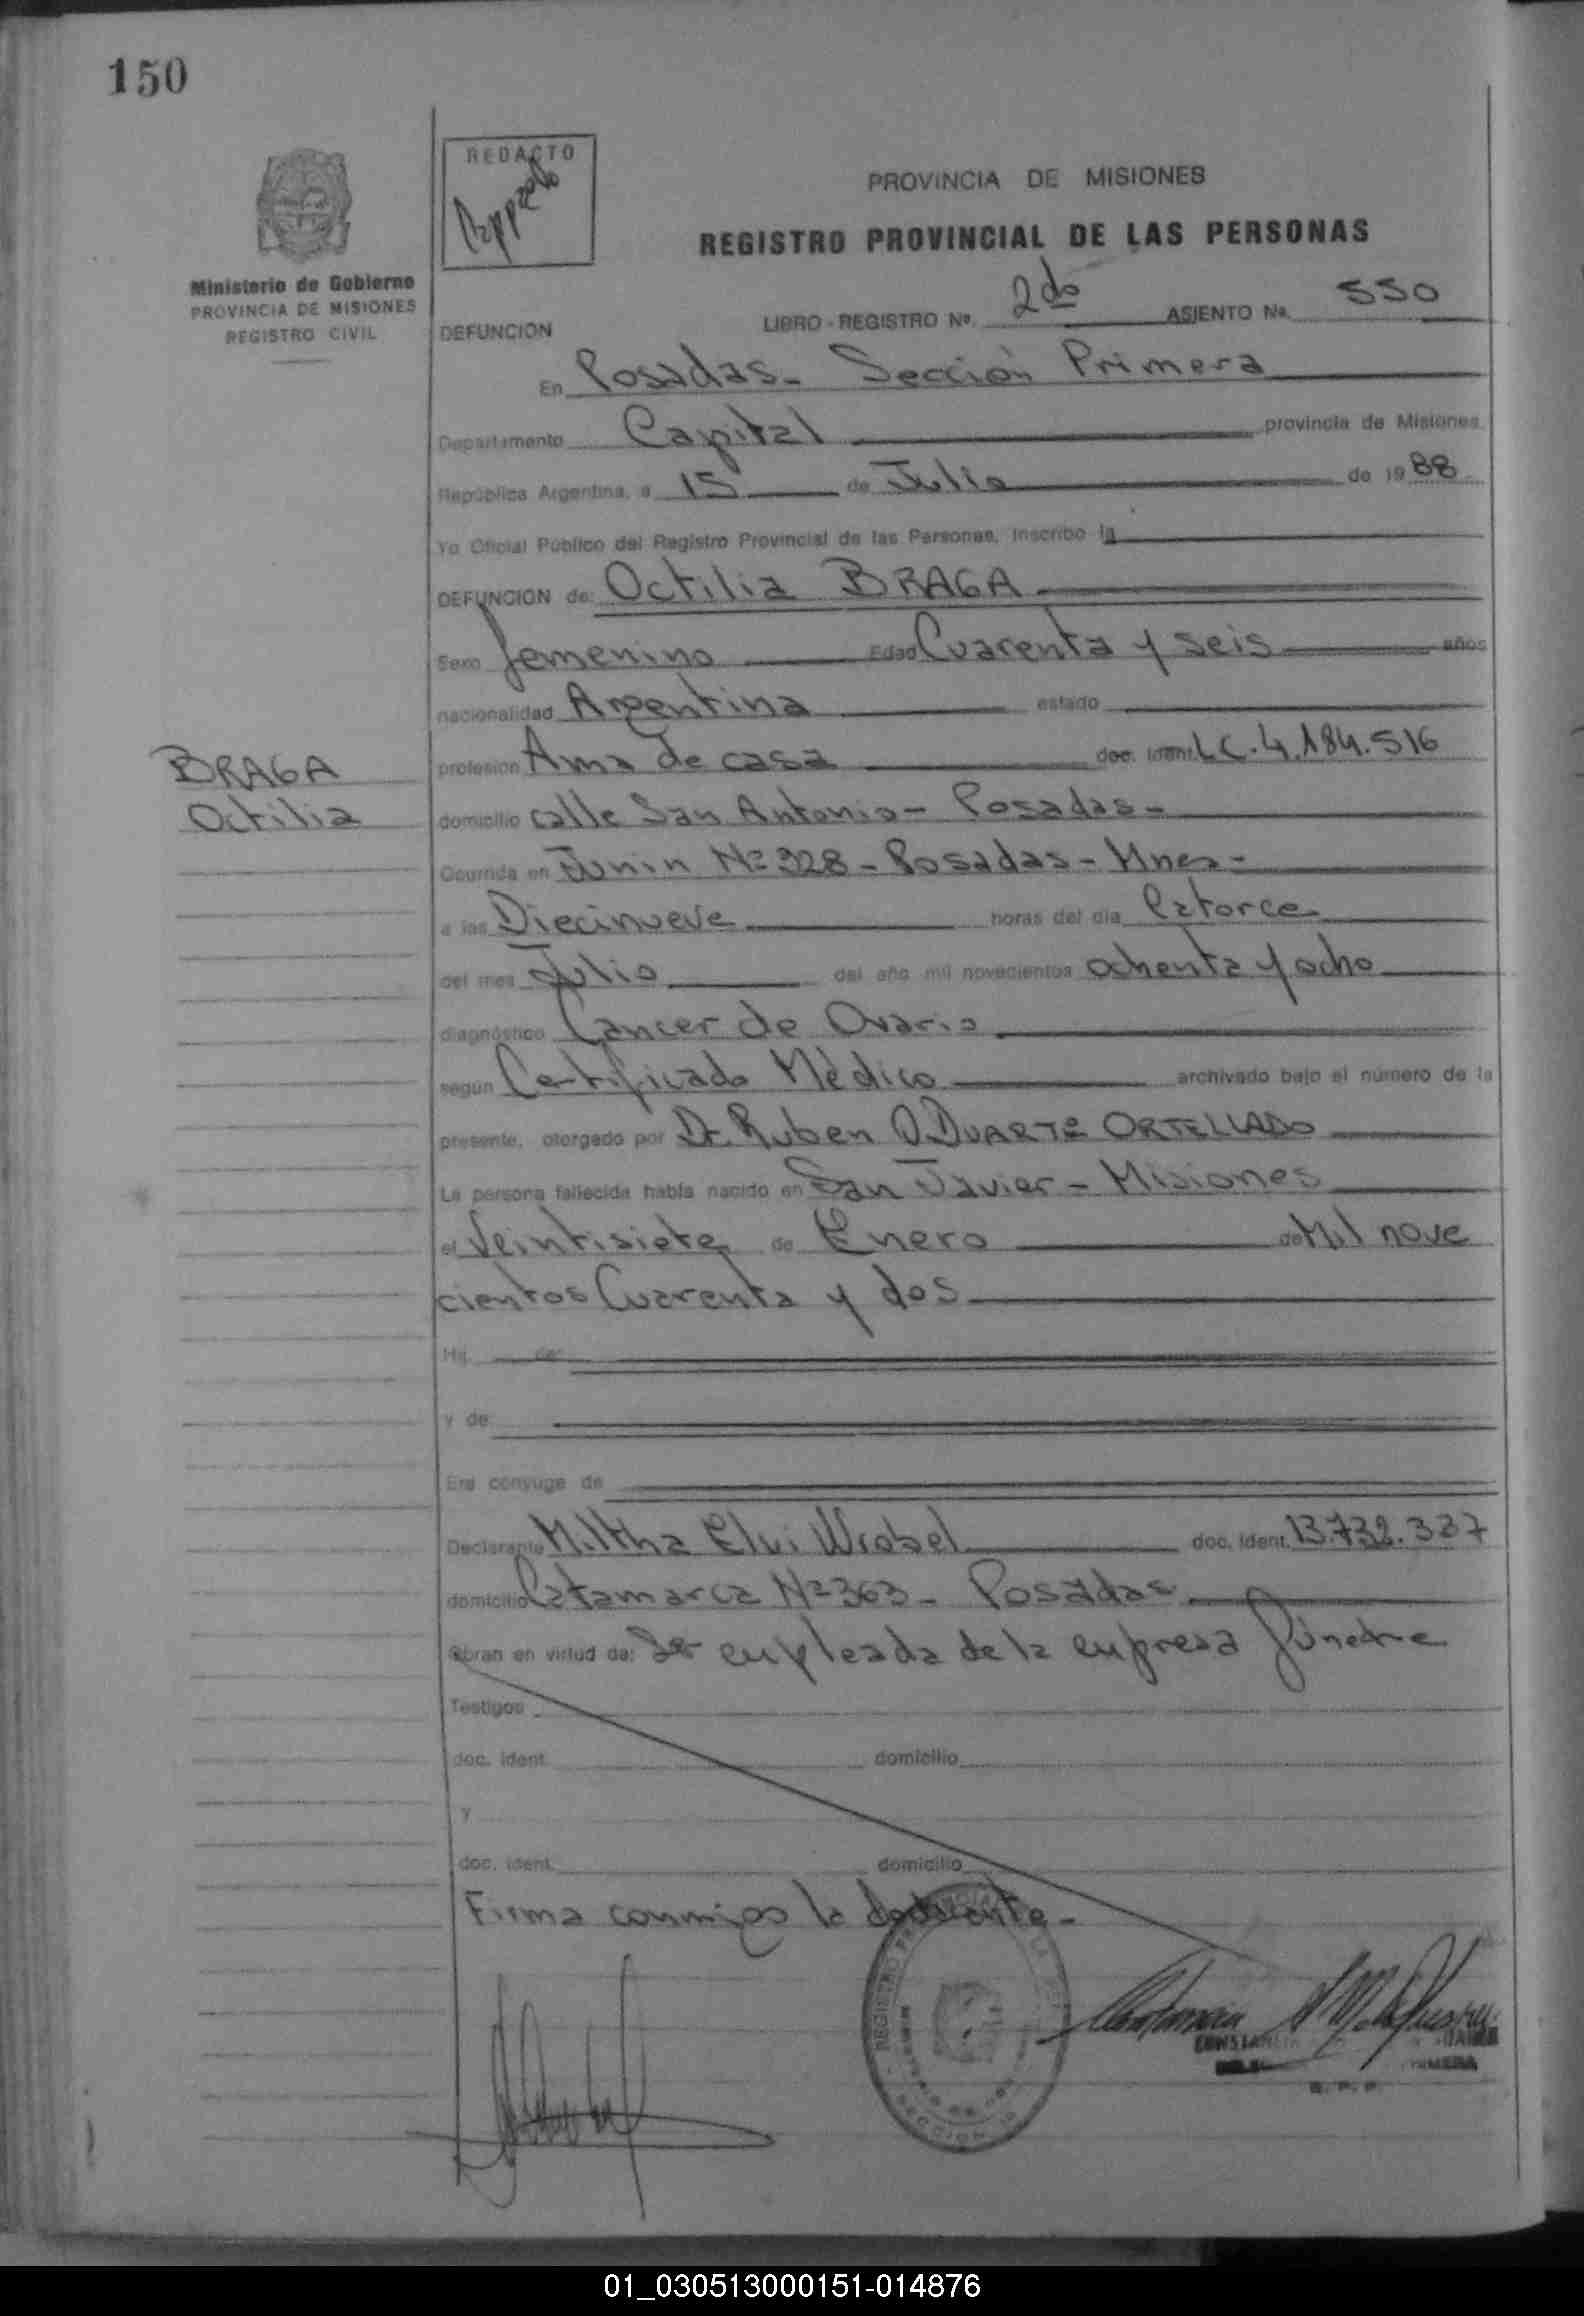 150
REDACTO
PROVINCIA DE MISIONES
REGISTRO PROVINCIAL DE LAS PERSONAS
Ministerio de Gobierno
PROVINCIA DE MISIONES
REGISTRO CIVIL
DEFUNCION LIBRO - REGISTRO Nº. 2do ASIENTO Nº. 550
En Posadas - Sección Primera
Departamento Capital provincia de Misiones,
República Argentina, a 15 de Julio de 1988
Yo Oficial Público del Registro Provincial de las Personas, inscribo la
DEFUNCION de: Octilia BRAGA
Sexo femenino Edad Cuarenta y seis años
nacionalidad Argentina estado
BRAGA
Octilia
profesión Ama de casa doc. Ident. L.C. 4.184.516
domicilio calle San Antonio - Posadas -
Ocurrida en Junin Nº 928 - Posadas - Mnes -
a las Diecinueve horas del día Catorce
del mes Julio del año mil novecientos ochenta y ocho
diagnóstico Cancer de Ovario
según Certificado Médico archivado bajo el número de la
presente, otorgado por Dr. Ruben O. DUARTE ORTELLADO
La persona fallecida había nacido en San Javier - Misiones
el Veintisiete de Enero de Mil nove
cientos Cuarenta y dos
Hij de:
y de:
Era cónyuge de
Declarante Miltha Elvi Wrobel doc. ident. 13.732.337
domicilio Catamarca Nº 363 - Posadas
Obran en virtud de: Ser empleada de la empresa fúnebre
Testigos
doc. ident. domicilio
y
doc. ident. domicilio
Firma conmigo la declarante -
SECCION 1a
R. P. P.
01_030513000151-014876